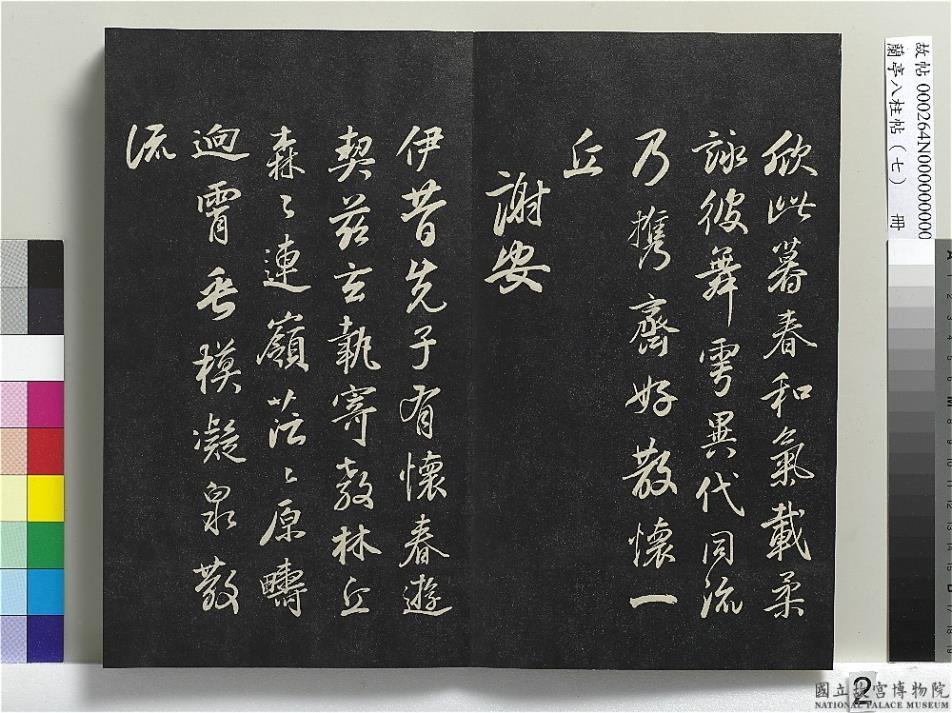 欣此暮春和氣載柔
詠彼舞雩異代同流
乃攜齊好散懷一
丘
謝安
伊昔先子有懷春遊
契茲言執寄敖林丘
森〻連嶺茫〻原疇
逈霄垂模凝泉散
流
故帖 000264N000000000
蘭亭八柱帖(七) 冊
2
國立故宮博物院
NATIONAL PALACE MUSEUM